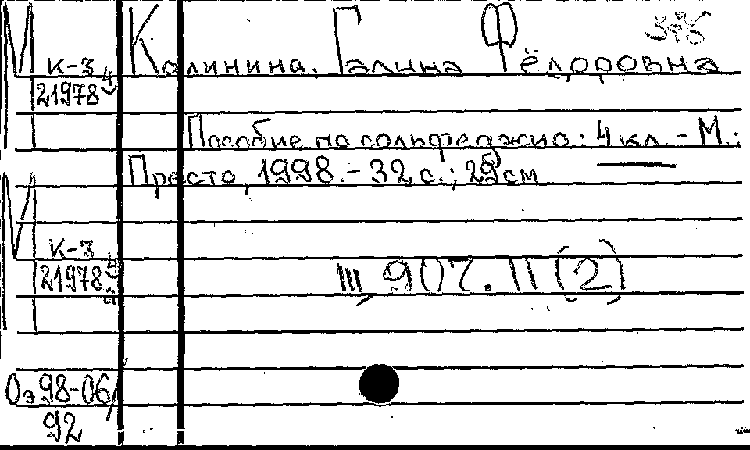 Калинина, Галина Фёдоровна
К-3
21978
Пособие по сольфеджио: 4 кл. - М.:
Престо, 1998. - 32 с.; 29 см
К-3
21978
Щ 907.11(2)
Оэ 98-06/
92